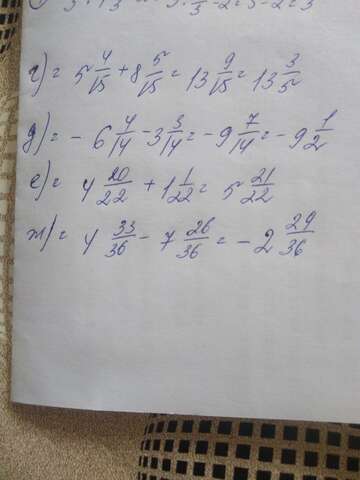 г) = 5 4/15 + 8 5/15 = 13 9/15 = 13 3/5
д) = - 6 4/14 - 3 3/14 = - 9 7/14 = - 9 1/2
е) = 4 20/22 + 1 1/22 = 5 21/22
ж) = 4 33/36 - 7 26/36 = - 2 29/36